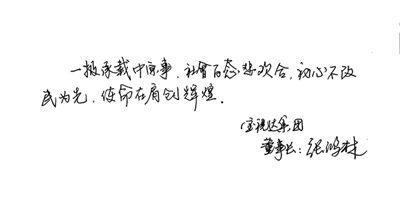 一报承载中国事，社会百态悲欢合，初心不改
民为先，使命在肩创辉煌．
宝视达集团
董事长：张鸿林